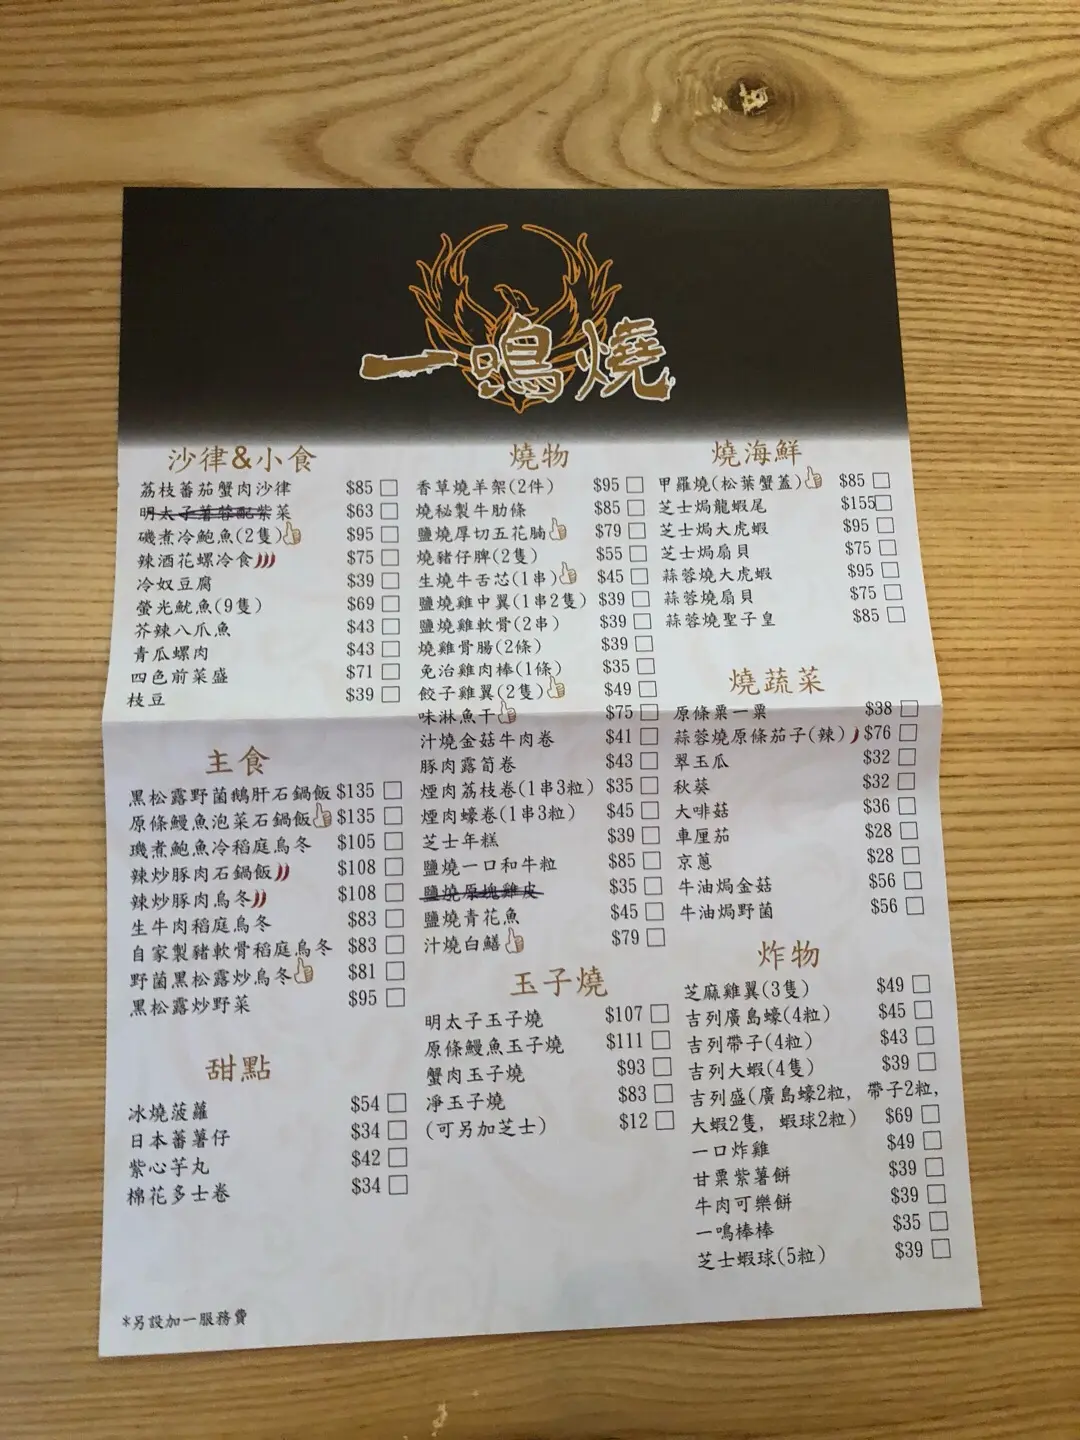 一鳴燒
沙律&小食
荔枝蕃茄蟹肉沙律 $85
明太子薯蓉配紫菜 $63
磯煮冷鮑魚(2隻) $95
辣酒花螺冷食 $75
冷奴豆腐 $39
螢光魷魚(9隻) $69
芥辣八爪魚 $43
青瓜螺肉 $43
四色前菜盛 $71
枝豆 $39
主食
黑松露野菌鵝肝石鍋飯 $135
原條鰻魚泡菜石鍋飯 $135
璣煮鮑魚冷稻庭烏冬 $105
辣炒豚肉石鍋飯 $108
辣炒豚肉烏冬 $108
生牛肉稻庭烏冬 $83
自家製豬軟骨稻庭烏冬 $83
野菌黑松露炒烏冬 $81
黑松露炒野菜 $95
甜點
冰燒菠蘿 $54
日本蕃薯仔 $34
紫心芋丸 $42
棉花多士卷 $34
燒物
香草燒羊架(2件) $95
燒秘製牛肋條 $85
鹽燒厚切五花腩 $79
燒豬仔脾(2隻) $55
生燒牛舌芯(1串) $45
鹽燒雞中翼(1串2隻) $39
鹽燒雞軟骨(2串) $39
燒雞骨腸(2條) $39
免治雞肉棒(1條) $35
餃子雞翼(2隻) $49
味淋魚干 $75
汁燒金菇牛肉卷 $41
豚肉露筍卷 $43
煙肉荔枝卷(1串3粒) $35
煙肉蠔卷(1串3粒) $45
芝士年糕 $39
鹽燒一口和牛粒 $85
鹽燒原塊雞皮 $35
鹽燒青花魚 $45
汁燒白鱔 $79
玉子燒
明太子玉子燒 $107
原條鰻魚玉子燒 $111
蟹肉玉子燒 $93
凈玉子燒 $83
(可另加芝士) $12
燒海鮮
甲羅燒(松葉蟹蓋) $85
芝士焗龍蝦尾 $155
芝士焗大虎蝦 $95
芝士焗扇貝 $75
蒜蓉燒大虎蝦 $95
蒜蓉燒扇貝 $75
蒜蓉燒聖子皇 $85
燒蔬菜
原條粟一粟 $38
蒜蓉燒原條茄子(辣) $76
翠玉瓜 $32
秋葵 $32
大啡菇 $36
車厘茄 $28
京蔥 $28
牛油焗金菇 $56
牛油焗野菌 $56
炸物
芝麻雞翼(3隻) $49
吉列廣島蠔(4粒) $45
吉列帶子(4粒) $43
吉列大蝦(4隻) $39
吉列盛(廣島蠔2粒, 帶子2粒,
大蝦2隻, 蝦球2粒) $69
一口炸雞 $49
甘粟紫薯餅 $39
牛肉可樂餅 $39
一鳴棒棒 $35
芝士蝦球(5粒) $39
*另設加一服務費